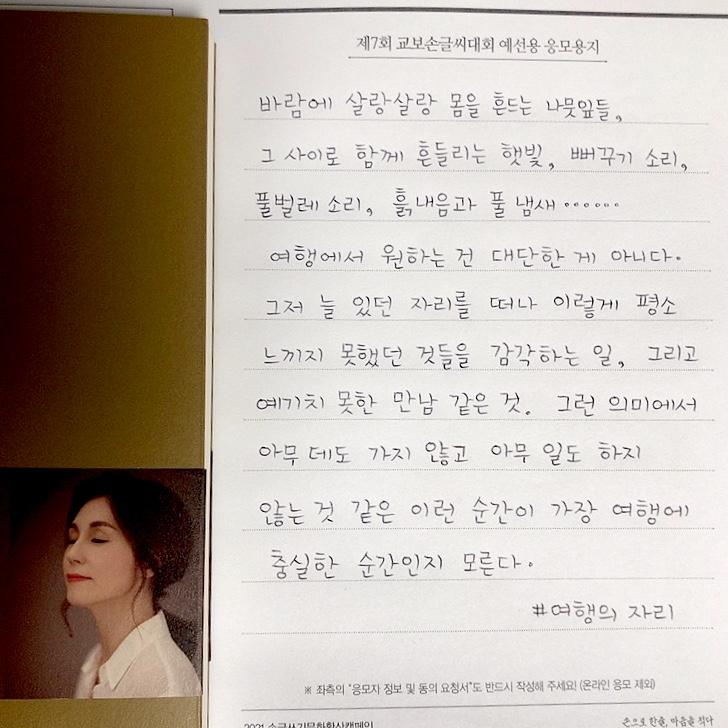 제7회 교보손글씨대회 예선용 응모용지
바람에 살랑살랑 몸을 흔드는 나뭇잎들,
그 사이로 함께 흔들리는 햇빛, 뻐꾸기 소리,
풀벌레 소리, 흙내음과 풀 냄새……
여행에서 원하는 건 대단한 게 아니다.
그저 늘 있던 자리를 떠나 이렇게 평소
느끼지 못했던 것들을 감각하는 일, 그리고
예기치 못한 만남 같은 것. 그런 의미에서
아무 데도 가지 않고 아무 일도 하지
않는 것 같은 이런 순간이 가장 여행에
충실한 순간인지 모른다.
#여행의 자리
※ 좌측의 "응모자 정보 및 동의 요청서"도 반드시 작성해 주세요! (온라인 응모 제외)
2021 손글쓰기문화확산캠페인
손으로 한줄, 마음을 적다